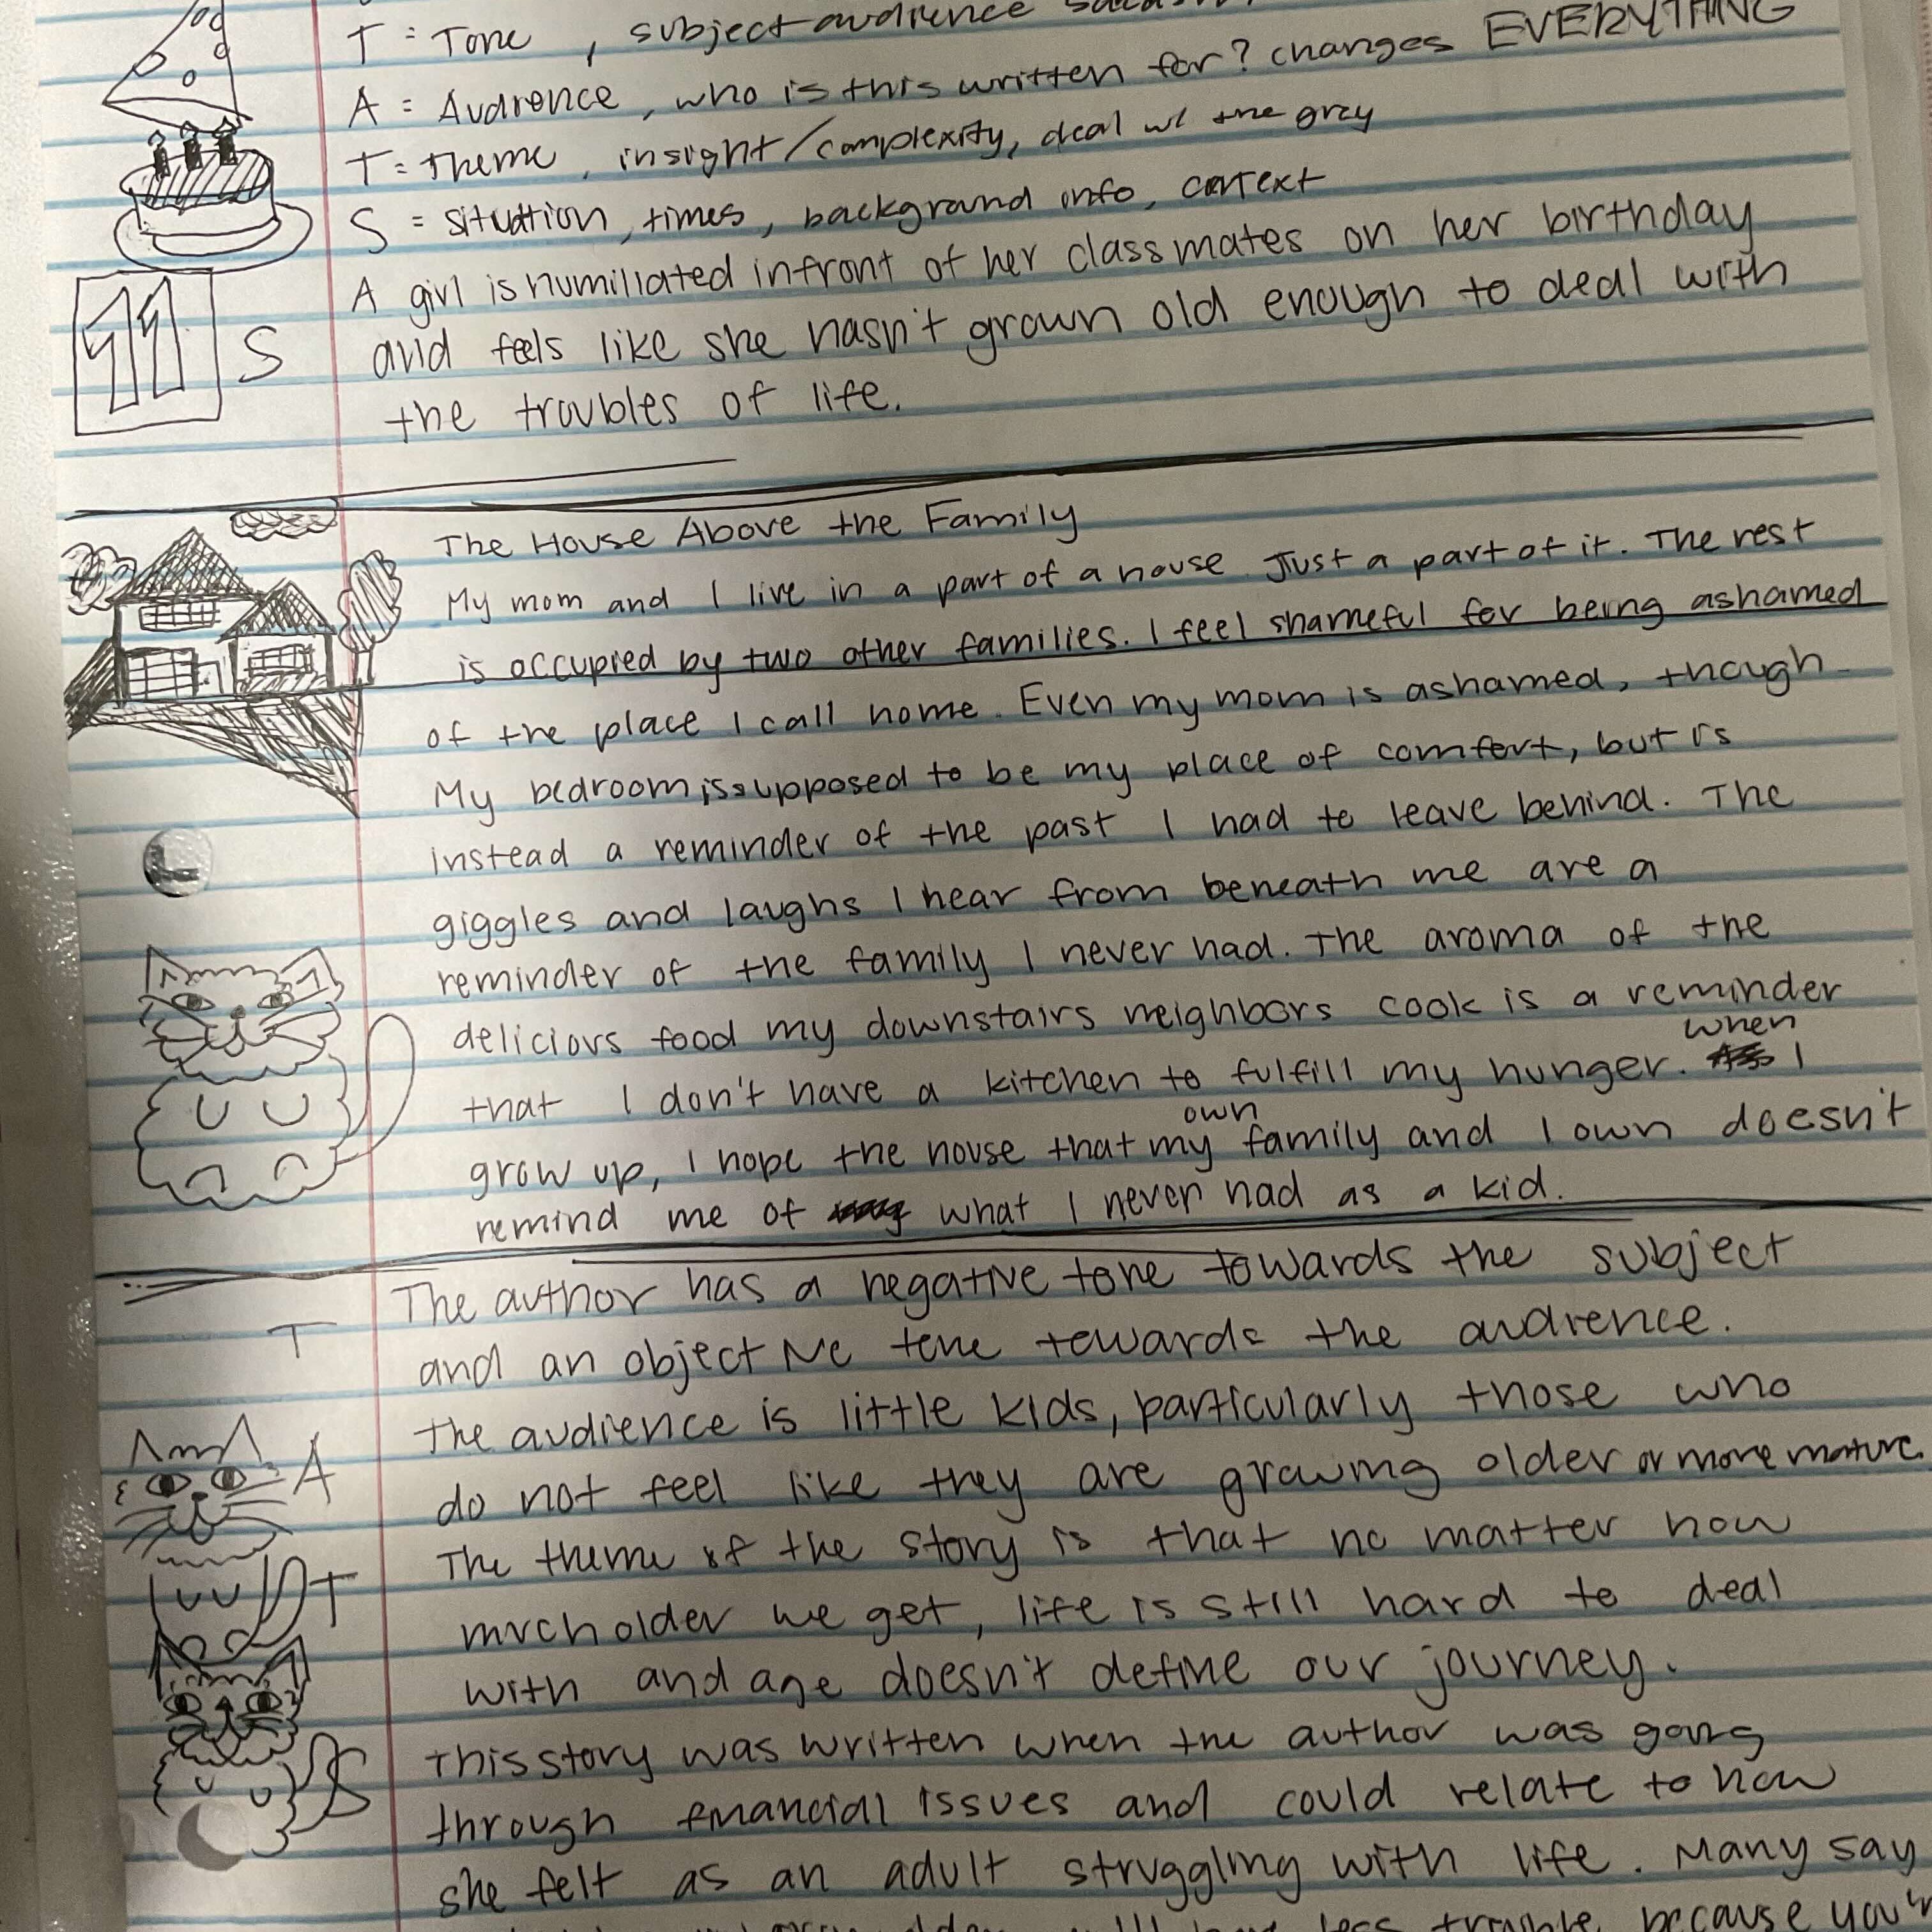 T = Tone, subject-audience
A = Audience, who is this written for? changes EVERYTHING
T = theme, insight/complexity, deal w/ the gray
S = situation, times, background info, context
A girl is humiliated infront of her classmates on her birthday
11 S and feels like she hasn't grown old enough to deal with
the troubles of life.
The House Above the Family
My mom and I live in a part of a house. Just a part of it. The rest
is occupied by two other families. I feel shameful for being ashamed
of the place I call home. Even my mom is ashamed, though
My bedroom is supposed to be my place of comfort, but is
instead a reminder of the past I had to leave behind. The
giggles and laughs I hear from beneath me are a
reminder of the family I never had. The aroma of the
delicious food my downstairs neighbors cook is a reminder
that I don't have a kitchen to fulfill my hunger. when I
grow up, I hope the house that my own family and I own doesn't
remind me of what I never had as a kid.
The author has a negative tone towards the subject
T and an objective tone towards the audience.
the audience is little kids, particularly those who
A do not feel like they are growing older or more mature.
The theme of the story is that no matter how
T much older we get, life is still hard to deal
with and age doesn't define our journey.
This story was written when the author was going
S through financial issues and could relate to how
she felt as an adult struggling with life. Many say
less trouble because you'r